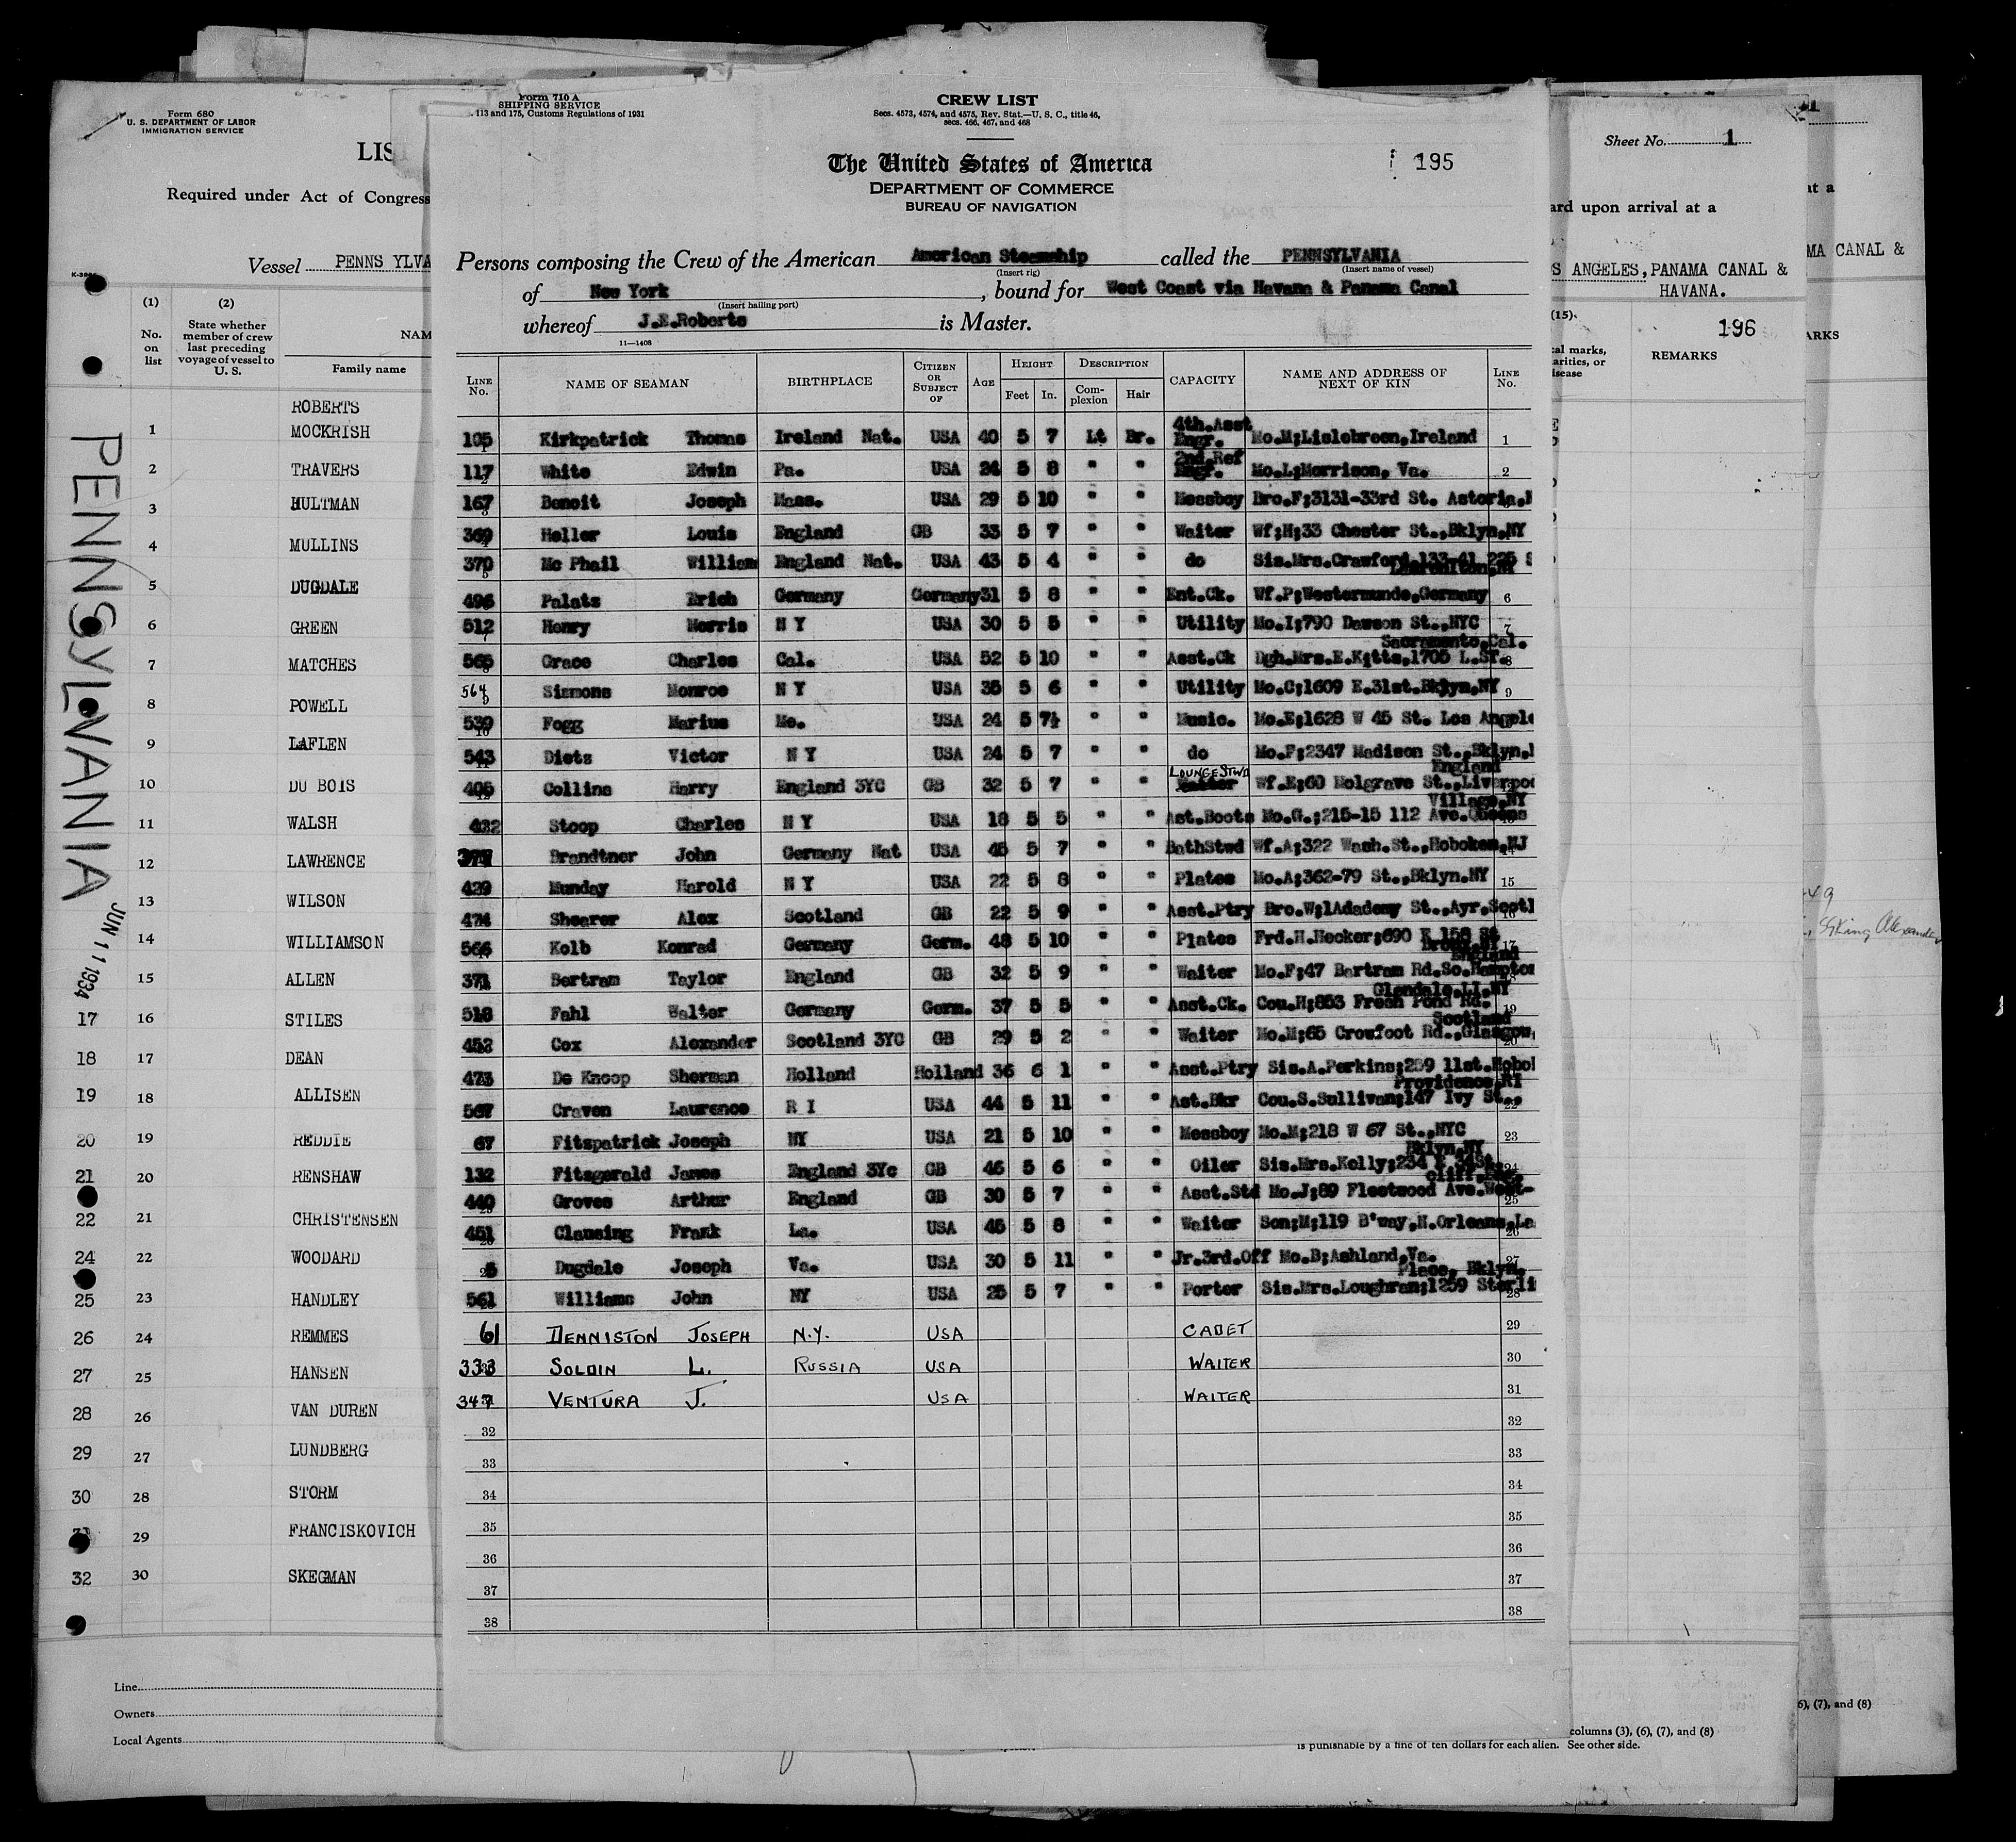 Form 680
U. S. DEPARTMENT OF LABOR
IMMIGRATION SERVICE
LIS
Required under Act of Congress
Vessel PENNS YLVA
(1) (2)
No. on list
State whether member of crew last preceding voyage of vessel to U. S.
NAM
Family name
ROBERTS
1 MOCKRISH
2 TRAVERS
3 HULTMAN
4 MULLINS
5 DUGDALE
6 GREEN
7 MATCHES
8 POWELL
9 LAFLEN
10 DU BOIS
11 WALSH
12 LAWRENCE
13 WILSON
14 WILLIAMSON
15 ALLEN
17 16 STILES
18 17 DEAN
19 18 ALLISEN
20 19 REDDIE
21 20 RENSHAW
22 21 CHRISTENSEN
24 22 WOODARD
25 23 HANDLEY
26 24 REMMES
27 25 HANSEN
28 26 VAN DUREN
29 27 LUNDBERG
30 28 STORM
29 FRANCISKOVICH
32 30 SKEGMAN
Line
Owners
Local Agents
PENNSYLVANIA
JUN 11 1934
Form 710 A
SHIPPING SERVICE
113 and 175, Customs Regulations of 1931
CREW LIST
Secs. 4573, 4574, and 4575, Rev. Stat.—U. S. C., title 46,
secs. 466, 467, and 468
The United States of America
195
DEPARTMENT OF COMMERCE
BUREAU OF NAVIGATION
Persons composing the Crew of the American American Steamship called the PENNSYLVANIA
(Insert rig) (Insert name of vessel)
of New York, bound for West Coast via Havana & Panama Canal
(Insert hailing port)
whereof J.E.Roberts is Master.
11—1408
LINE No. NAME OF SEAMAN BIRTHPLACE CITIZEN OR SUBJECT OF AGE HEIGHT Feet In. DESCRIPTION Complexion Hair CAPACITY NAME AND ADDRESS OF NEXT OF KIN LINE No.
105 Kirkpatrick Thomas Ireland Nat. USA 40 5 7 Lt Br. 4th.Asst Engr. Mo.M;Lislebreen,Ireland 1
117 White Edwin Pa. USA 24 5 8 " " 2nd.Ref Engr. Mo.L;Morrison, Va. 2
167 Benoit Joseph Mass. USA 29 5 10 " " Messboy Bro.F;3131-33rd St. Astoria,N
369 Heller Louis England GB 33 5 7 " " Waiter Wf;H;33 Chester St.,Bklyn,NY
370 Mc Phail William England Nat. USA 43 5 4 " " do Sis.Mrs.Crawford,133-41 225 S
496 Palatz Erich Germany Germany 31 5 8 " " Ent.Ck. Wf.P;Westermunde,Germany 6
512 Henry Morris N Y USA 30 5 5 " " Utility Mo.I;790 Dawson St.,NYC 7
565 Grace Charles Cal. USA 52 5 10 " " Asst.Ck Dgh.Mrs.E.Kitts,1705 L.ST. Sacramento,Cal. 8
564 Simmons Monroe N Y USA 35 5 6 " " Utility Mo.C;1609 E.31st.Bklyn,NY 9
539 Fogg Marius Me. USA 24 5 7½ " " Music. Mo.E;1628 W 45 St. Los Angele
543 Dietz Victor N Y USA 24 5 7 " " do Mo.F;2347 Madison St.,Bklyn,N
405 Collins Harry England 3YC GB 32 5 7 " " LOUNGE STWD Waiter Wf.E;60 Molgrave St.,Liverpoo England
432 Stoop Charles N Y USA 18 5 5 " " Ast.Boots Mo.G.;215-15 112 Ave.Queens Village,NY
377 Brandtner John Germany Nat USA 45 5 7 " " BathStwd Wf.A;322 Wash.St.,Hoboken,NJ
429 Munday Harold N Y USA 22 5 8 " " Plates Mo.A;362-79 St.,Bklyn.NY 15
474 Shearer Alex Scotland GB 22 5 9 " " Asst.Ptry Bro.W;1Adademy St.,Ayr.Scotl
566 Kolb Konrad Germany Germ. 48 5 10 " " Plates Frd.H.Hecker;690 E 158 St Bronx,NY 17
371 Bertram Taylor England GB 32 5 9 " " Waiter Mo.F;47 Bartram Rd.So.Hampton England
518 Fahl Walter Germany Germ. 37 5 5 " " Asst.Ck. Cou.H;853 Fresh Pond Rd. Glendale,LI,NY 19
452 Cox Alexander Scotland 3YC GB 29 5 2 " " Waiter Mo.M;65 Crowfoot Rd.,Glasgow, Scotland 20
473 De Knoop Sherman Holland Holland 36 6 1 " " Asst.Ptry Sis.A.Perkins;259 11st.Hobo
567 Craven Laurence R I USA 44 5 11 " " Ast.Bkr Cou.S.Sullivan;147 Ivy St., Providence,RI 22
67 Fitzpatrick Joseph NY USA 21 5 10 " " Messboy Mo.M;218 W 67 St.,NYC 23
132 Fitzgerald James England 3Yc GB 46 5 6 " " Oiler Sis.Mrs.Kelly;234 E 34St. Bklyn,NY 24
440 Groves Arthur England GB 30 5 7 " " Asst.Std Mo.J;89 Fleetwood Ave.West- Cliff,Eng. 25
451 Clausing Frank La. USA 45 5 8 " " Waiter Son;M;119 B'way,N.Orleans,La 26
5 Dugdale Joseph Va. USA 30 5 11 " " Jr.3rd.Off Mo.B;Ashland,Va. 27
561 Williams John NY USA 25 5 7 " " Porter Sis.Mrs.Loughran;1259 Sterli Place, Bklyn, 28
61 DENNISTON JOSEPH N.Y. USA CADET 29
333 SOLDIN L. RUSSIA USA WAITER 30
347 VENTURA J. USA WAITER 31
32 32
33 33
34 34
35 35
36 36
37 37
38 38
Sheet No. 1
ard upon arrival at a
S ANGELES, PANAMA CANAL &
HAVANA.
(15)
196
cal marks,
arities, or
isease
REMARKS
columns (3), (6), (7), and (8)
is punishable by a fine of ten dollars for each alien. See other side.
at a
MA CANAL &
ARKS
49
SS King Alexander
6), (7), and (8)